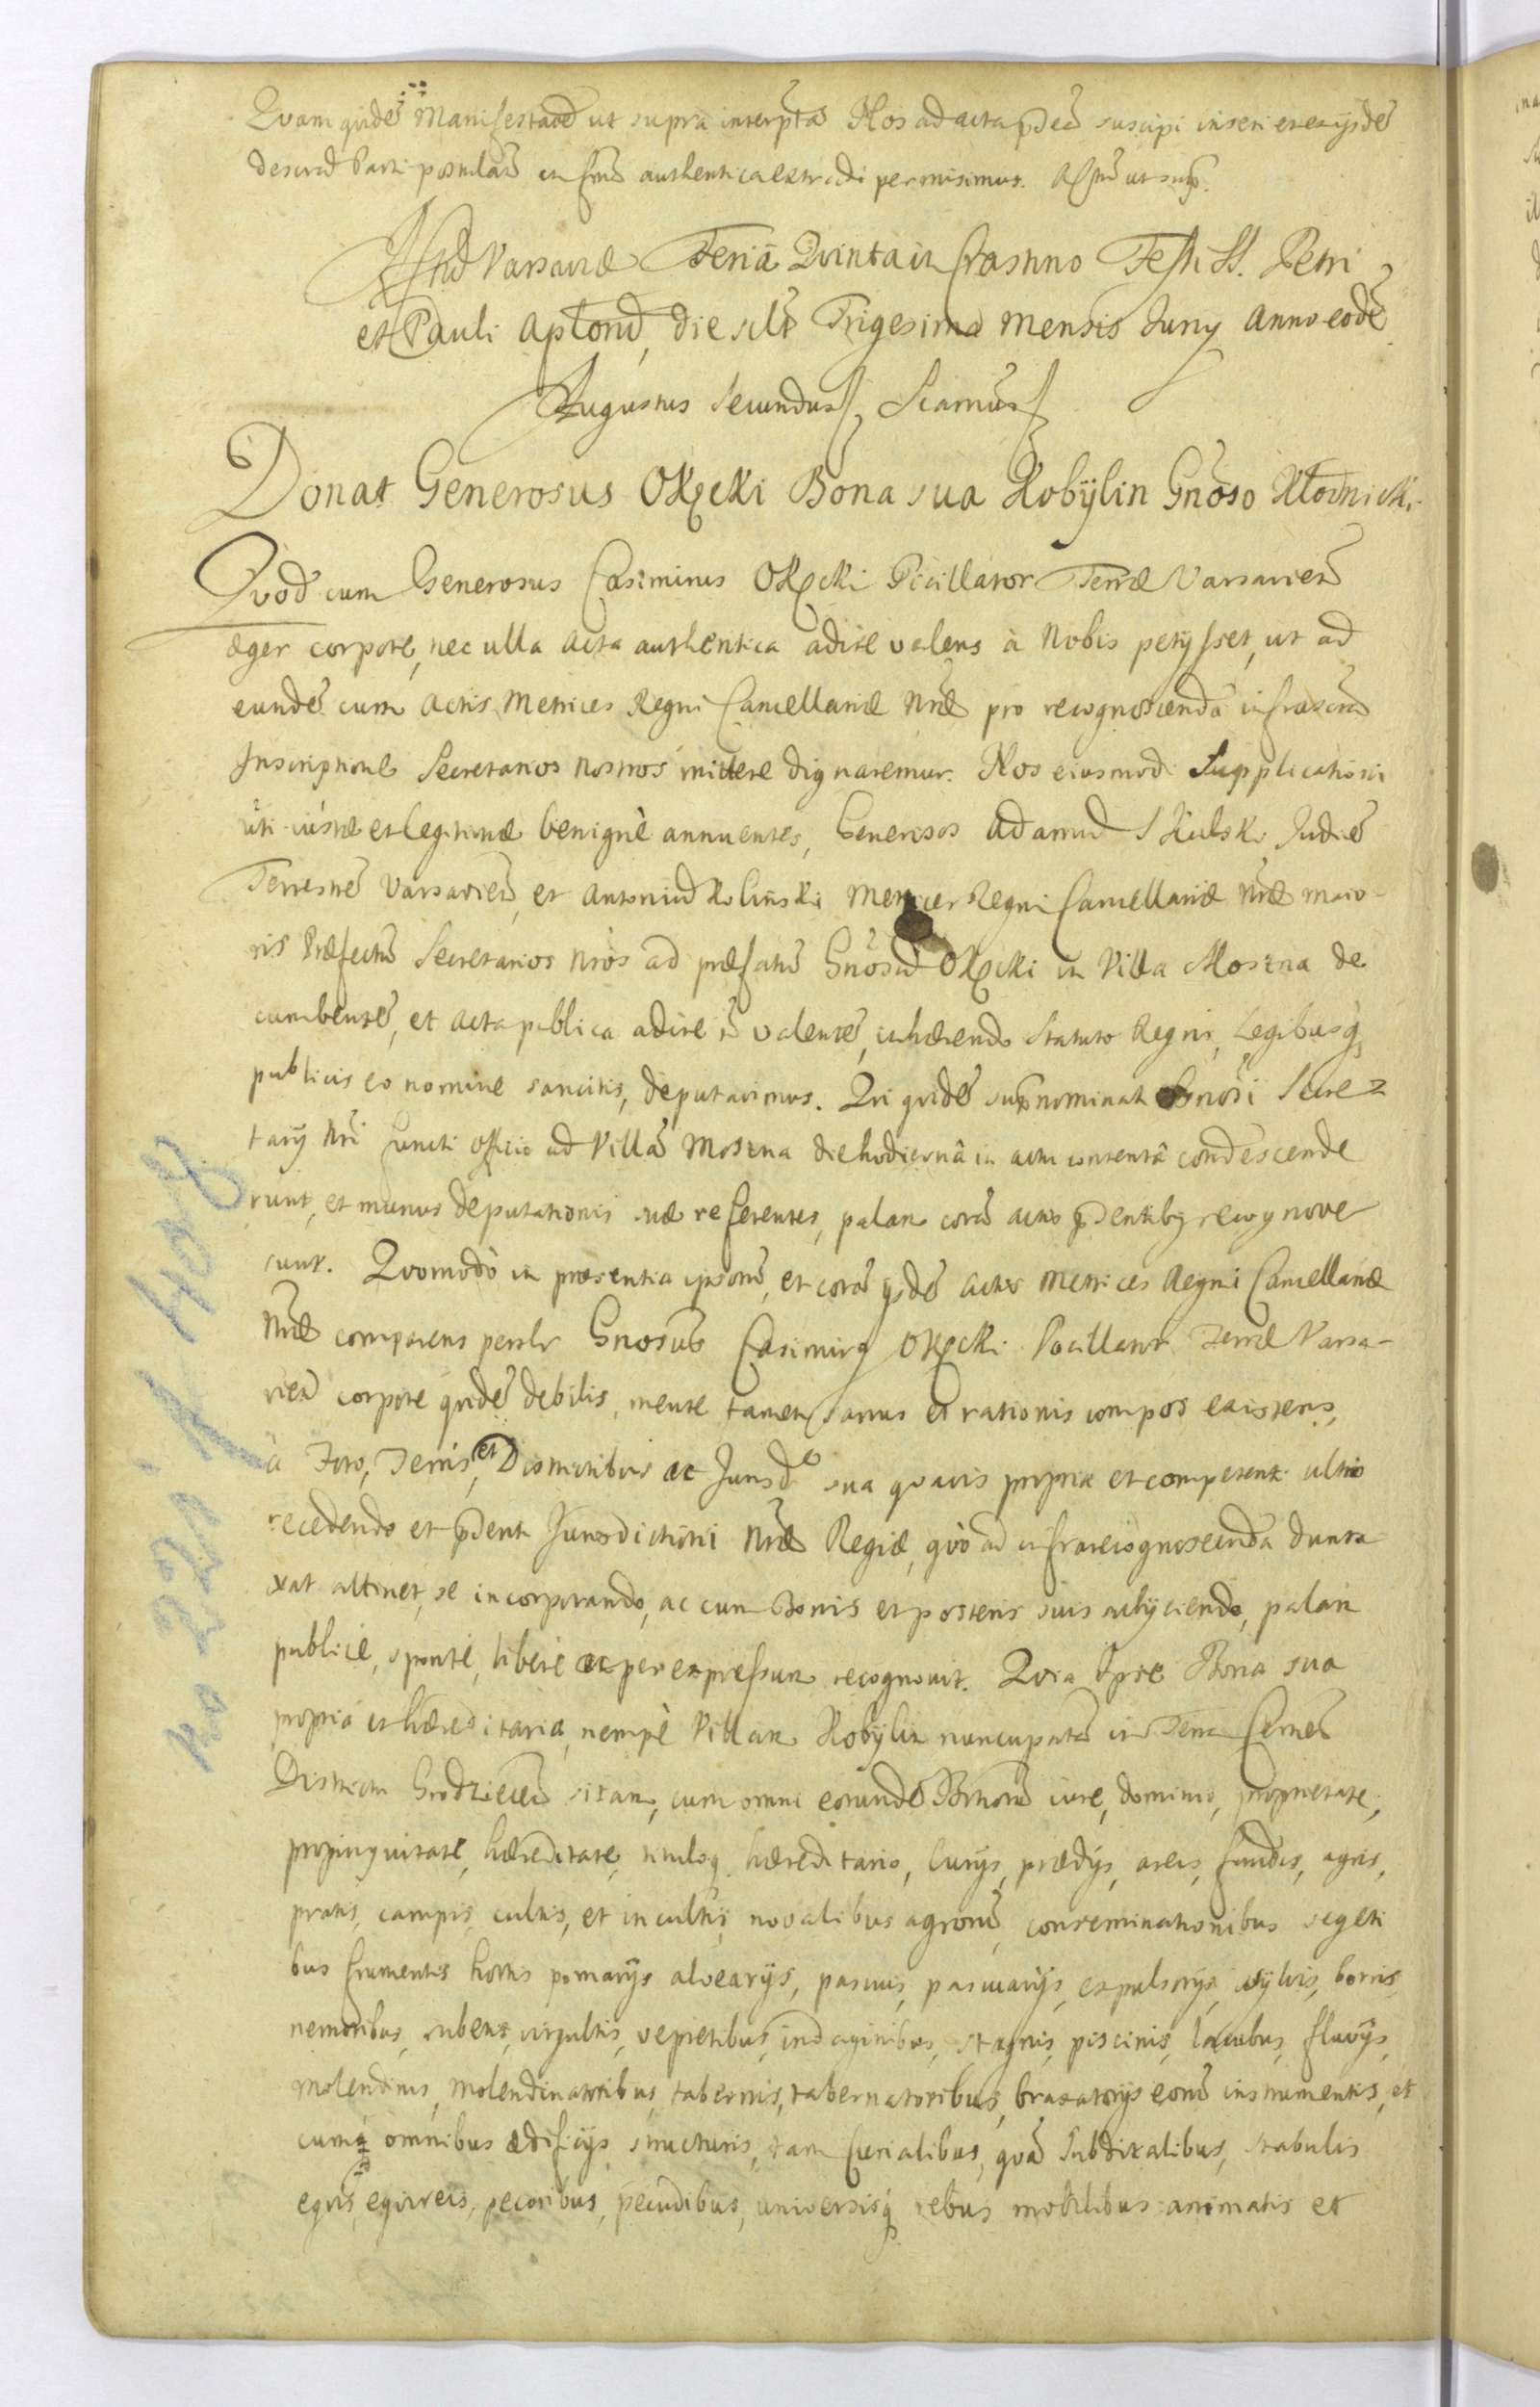 Quam quidē Manifestaōē ut supra interp̄ta Nos ad acta p̄dca suscipi inseri et ex ijsdē
descrid Parti postulan̄ in formā authentica extradi permisimus. Actū ut sup.
Actū Varsaviæ Feriâ Quinta in Crastino Festi SS. Petri
et Pauli Aptorū, die sclt Trigesima Mensis Juny Anno eodē.
Augustus Secundus
Donat Generosus Okęcki Bona sua Kobÿlin Gnōso Kłoznicki
Quod cum Generosus Casimirus Okęcki Pocillator Terræ Varsavien̄
æger corpore, nec ulla acta authentica adire valens à Nobis petijsset, ut ad
eundē cum Actis Metrices Regni Cancellariæ Nræ pro recognoscenda infrascrip̄
Inscriptione Secretarios nostros mittere dignaremur. Nos eiusmodi Supplicationi
uti iustæ et legitimæ benignè annuentes, Generosos Adamū Skulski Judicē
Terrestrē Varsavien̄, et Antoniū Koliński Metrices Regni Cancellariæ Nræ maio-
ris Præfectū Secretarios nros ad præfatū Gnōsū Okęcki in Villa Moszna de
cumbentē, et acta publica adire n̄ valentē, inhærendo Statuto Regni, Legibusq̨
publicis eo nomine sancitis, deputavimus. Qui quidē supnominati Gnōsi Secre=
tarÿ Nri functi officio ad Villā Moszna die hodiernâ in actu contentâ condescende
runt, et munus deputationis suæ referentes, palam corā actis p̄dentibq recognove
runt. Quomodò in præsentia ipsorū, et corā ijsdē actis Metrices Regni Cancellariæ
Nræ comparens persl̄r Gnosus Casimirq Okęcki Pocillator Terræ Varsa-
vien̄ corpore quidē debilis, mente tamen sanus et rationis compos existens,
à Foro, Terris, et Districtibus ac Jurisde sua quavis propria et competenti ultro
recedendo et p̄denti Jurisdictioni Nræ Regiæ, quò ad infrarecognoscenda dunta
xat attinet, se incorporando, ac cum Bonis et posteris suis adijciendo, palam
publice, sponte, libere ac per expressum recognovit. Quia Ipse Bona sua
propria et hæreditaria, nempè Villam Kobÿlin nuncupatā in Terra Cernen̄
Districtu Grodziecen̄ sitam, cum omni eorundē Bonorū iure, dominio, proprietate,
propinquitate, hæreditate, tituloq hæreditario, curijs, prædijs, areis, fundis, agris,
pratis, campis, cultis, et incultis, novalibus agrorū, conseminationibus segeti
bus frumentis hortis pomarijs alvearijs, pascuis, pascuarijs, expulsorijs, sÿlvis, borris,
nemoribus, rubetis, virgultis, vepretibus, indaginibus, stagnis, piscinis, lacubus, fluvijs,
molendinis, molendinatoribus, tabernis, tabernatoribus, braxatorijs eorū instrumentis, et
cumq̨ omnibus ædificijs, structuris, tam Curialibus, quā Subditalibus, stabulis
equis, equireis, pecoribus, pecudibus, universisq̨ rebus mobilibus animatis et